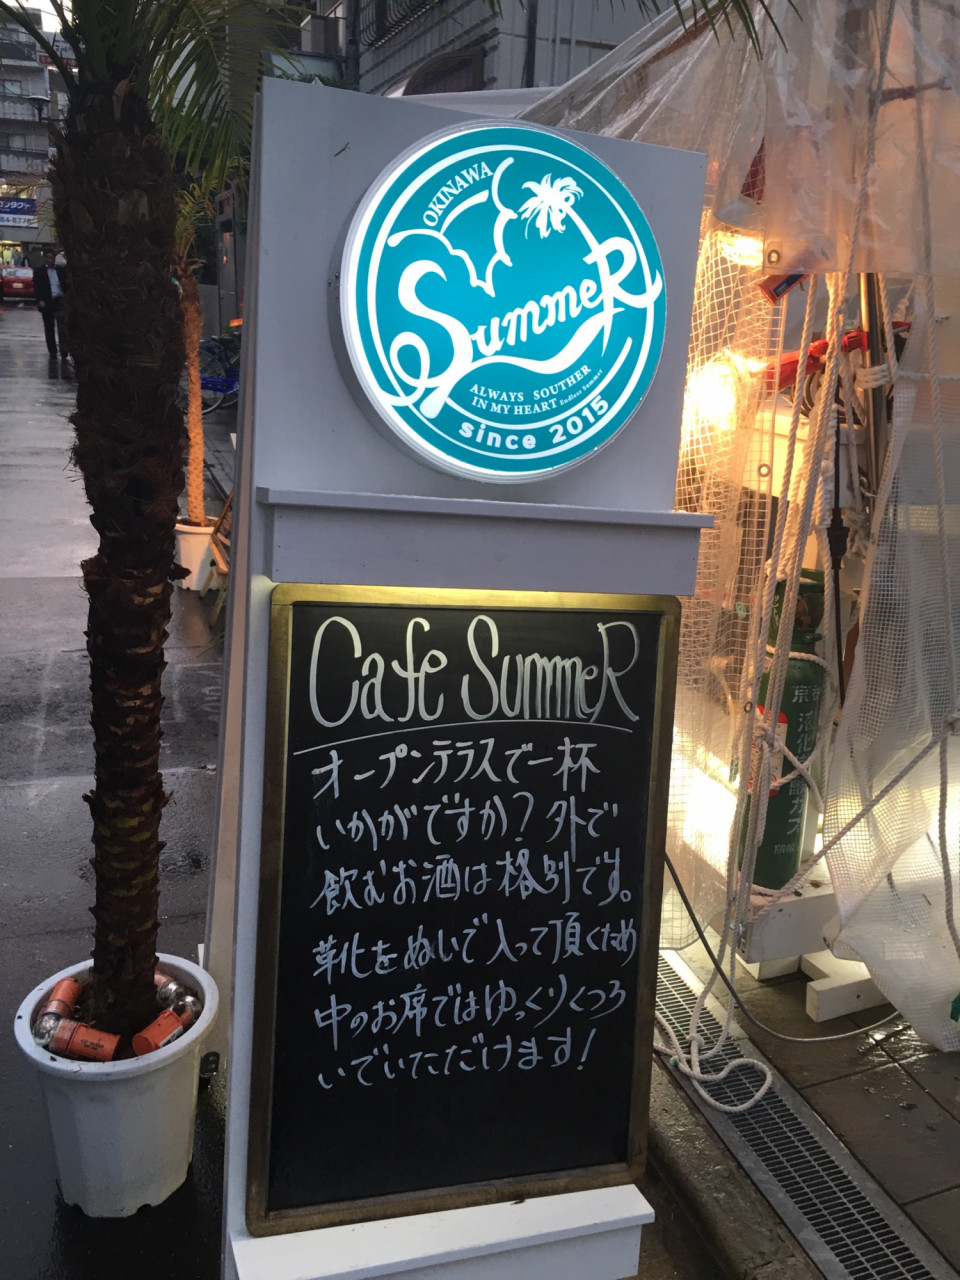 OKINAWA
SummeR
ALWAYS SOUTHER
IN MY HEART Endless Summer
since 2015
Cafe SummeR
オープンテラスで一杯
いかがですか?外で
飲むお酒は格別です。
靴をぬいで入って頂くため
中のお席ではゆっくりくつろ
いでいただけます!